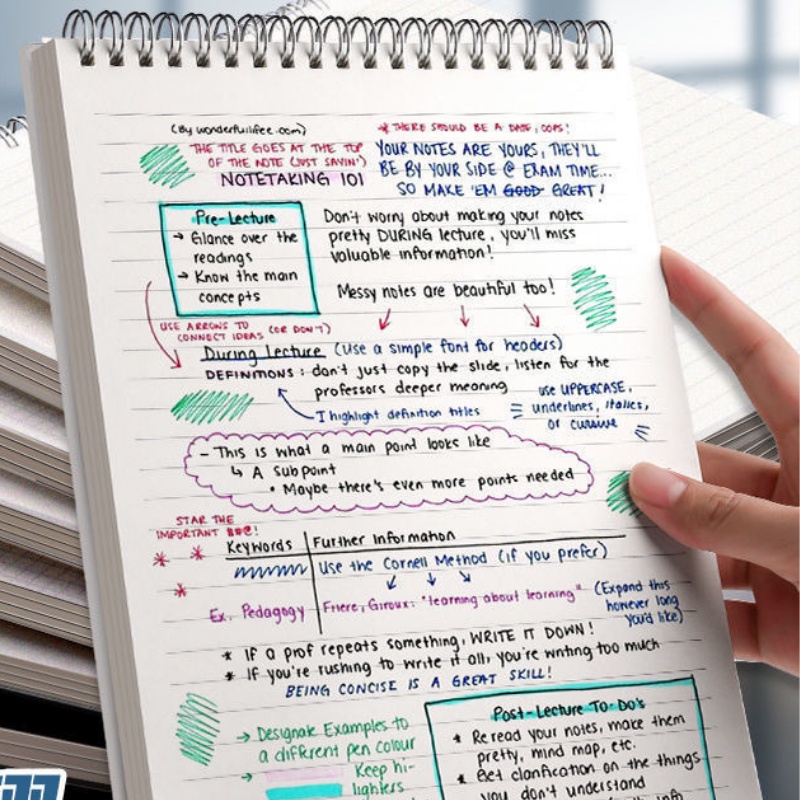 (By wonderfullifee.com)
* THERE SHOULD BE A DATE, OOPS!
THE TITLE GOES AT THE TOP
OF THE NOTE (JUST SAYIN')
NOTETAKING 101
YOUR NOTES ARE YOURS, THEY'LL
BE BY YOUR SIDE @ EXAM TIME...
SO MAKE 'EM GOOD GREAT!
Pre-Lecture
→ Glance over the
readings
→ Know the main
concepts
Don't worry about making your notes
pretty DURING lecture, you'll miss
valuable information!
Messy notes are beautiful too!
USE ARROWS TO
CONNECT IDEAS (OR DON'T)
During Lecture (Use a simple font for headers)
DEFINITIONS: don't just copy the slide, listen for the
professors deeper meaning
I highlight definition titles
use UPPERCASE,
underlines, italics,
or cursive
- This is what a main point looks like
↳ A Sub point
• Maybe there's even more points needed
STAR THE
IMPORTANT $#@!
Keywords | Further Information
Use the Cornell Method (if you prefer)
Ex. Pedagogy
Friere, Giroux: "learning about learning"
(Expand this
however long
you'd like)
* IF a prof repeats something, WRITE IT DOWN!
* If you're rushing to write it all, you're writing too much
BEING CONCISE IS A GREAT SKILL!
→ Designate Examples to
a different pen colour
→ Keep hi-
lighters
Post-Lecture To-Do's
* Reread your notes, make them
pretty, mind map, etc.
* Get clarification on the things
you don't understand
info